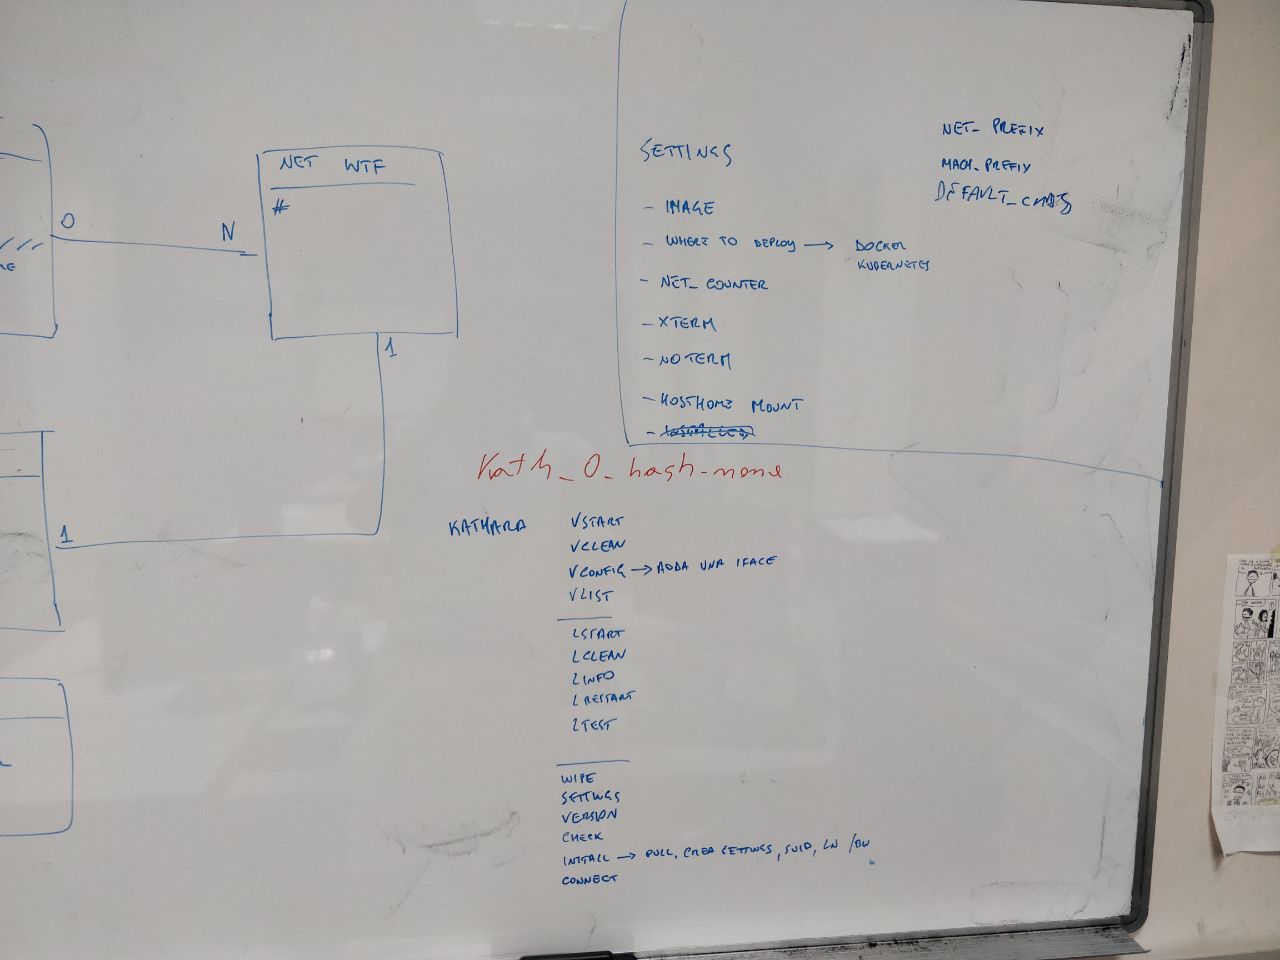 NET WTF
#
0
N
1
1
SETTINGS
- IMAGE
- WHERE TO DEPLOY → DOCKER
KUBERNETES
- NET_COUNTER
- XTERM
- NOTERM
- HOSTHOME MOUNT
-
NET_PREFIX
MACH_PREFIX
DEFAULT_CMDS
Kath_0_hash-nome
KATHARA
VSTART
VCLEAN
VCONFIG → ADDA UNA IFACE
VLIST
LSTART
LCLEAN
LINFO
LRESTART
LTEST
WIPE
SETTINGS
VERSION
CHECK
INSTALL → PULL, CREA SETTINGS, SUID, LN /BIN
CONNECT